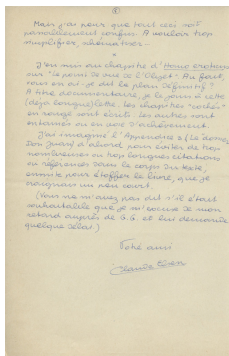 Mais j'ai peur que tout ceci soit
passablement confus. A vouloir trop
simplifier, schématiser...
*
J'en suis au chapitre d'Homo eroticus
sur "le point de vue de l'Objet". Au fait,
vous en ai-je dit le plan définitif ?
A titre documentaire, je le joins à cette
(déjà longue) lettre. Les chapitres "cochés"
en rouge sont écrits. Les autres sont
entamés ou en voie d'achèvement.
J'ai imaginé l'Appendice (Le
Don Juan) d'abord pour éviter de trop
nombreuses ou trop longues citations
ou références dans le corps du texte,
ensuite pour étoffer le livre, que je
craignais un peu court.
(Vous ne m'avez pas dit s'il était
souhaitable que je m'excuse de mon
retard auprès de G.G. et lui demande
quelque délai.)
Votre ami
Claude Elsen